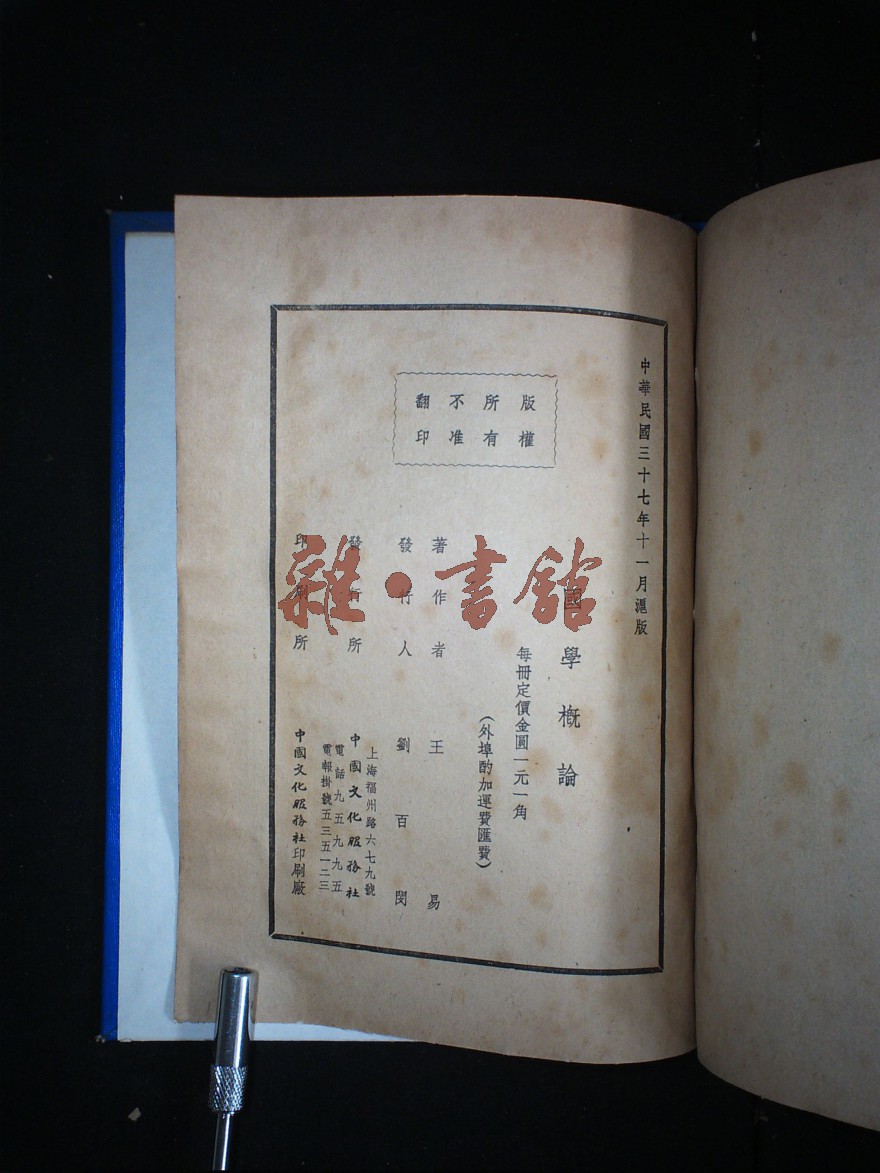 中華民國三十七年十一月滬版
版權所有不准翻印
國學概論
每冊定價金圓一元一角
（外埠酌加運費匯費）
著作者 王易
發行人 劉百閔
發行所 中國文化服務社
上海福州路六七九號
電話九五九九五
電報掛號五三五一二三
印刷所 中國文化服務社印刷廠
雜·書館